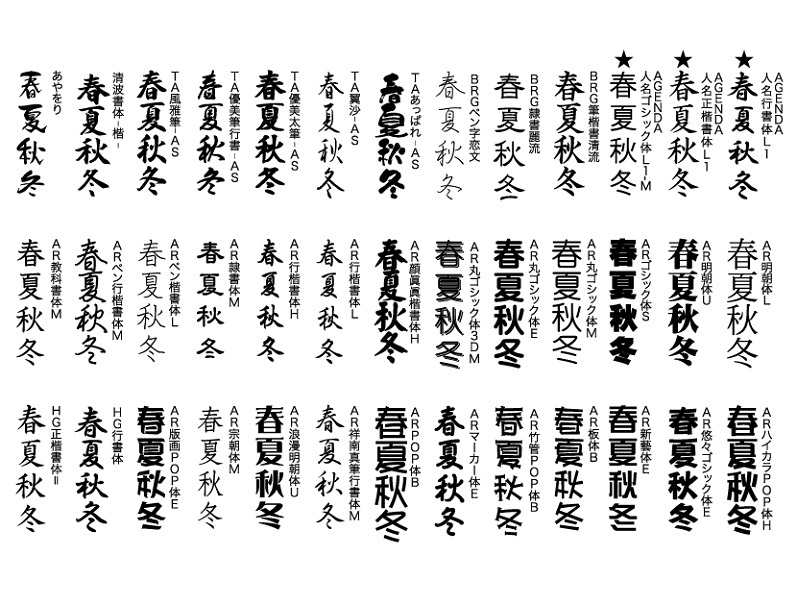 AGENDA
人名行書体L1
★
春夏秋冬
AGENDA
人名正楷書体L1
★
春夏秋冬
AGENDA
人名ゴシック体L1-M
★
春夏秋冬
BRG筆楷書清流
春夏秋冬
BRG隷書麗流
春夏秋冬
BRGペン字恋文
春夏秋冬
TAあっぱれ-AS
春夏秋冬
TA翼沙-AS
春夏秋冬
TA優美太筆-AS
春夏秋冬
TA優美筆行書-AS
春夏秋冬
TA風雅筆-AS
春夏秋冬
清波書体-楷-
春夏秋冬
あやをり
春夏秋冬
AR明朝体L
春夏秋冬
AR明朝体U
春夏秋冬
ARゴシック体S
春夏秋冬
AR丸ゴシック体M
春夏秋冬
AR丸ゴシック体E
春夏秋冬
AR丸ゴシック体3DM
春夏秋冬
AR顔眞楷書体H
春夏秋冬
AR行楷書体L
春夏秋冬
AR行楷書体H
春夏秋冬
AR隷書体M
春夏秋冬
ARペン楷書体L
春夏秋冬
ARペン行楷書体M
春夏秋冬
AR教科書体M
春夏秋冬
ARハイカラPOP体H
春夏秋冬
AR悠々ゴシック体E
春夏秋冬
AR新藝体E
春夏秋冬
AR板体B
春夏秋冬
AR竹管POP体B
春夏秋冬
ARマーカー体E
春夏秋冬
ARPOP体B
春夏秋冬
AR祥南真筆行書体M
春夏秋冬
AR浪漫明朝体U
春夏秋冬
AR宗朝体M
春夏秋冬
AR版画POP体E
春夏秋冬
HG行書体
春夏秋冬
HG正楷書体II
春夏秋冬